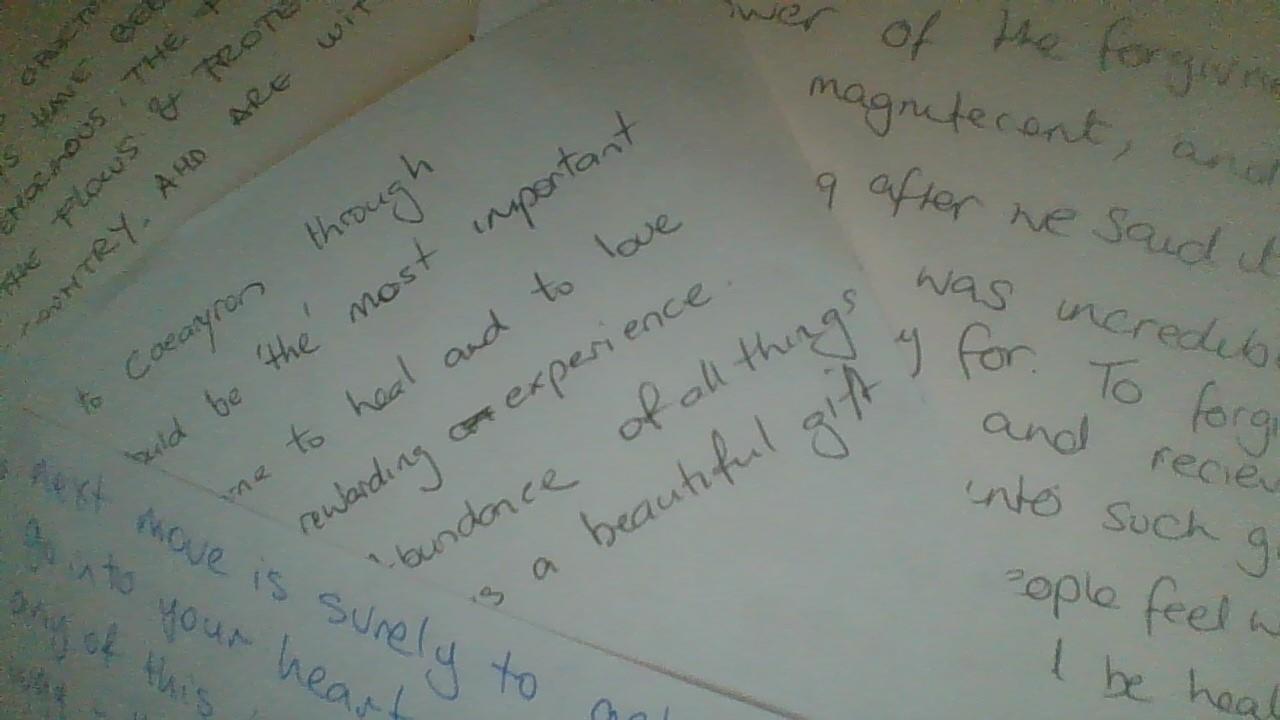 HAVE
ENORMOUS. THE
THE FLOWS & PROTE
COUNTRY. AND ARE WIT
to Caeayron through
be 'the' most important
me to heal and to love
rewarding experience.
bundance of all things
is a beautiful gift
wer of the forgivne
magnifecent, and
g after we said it
was incredib
y for. To forgi
and reciev
into such g
eople feel w
I be heal
next move is surely to
go into your heart
any of this